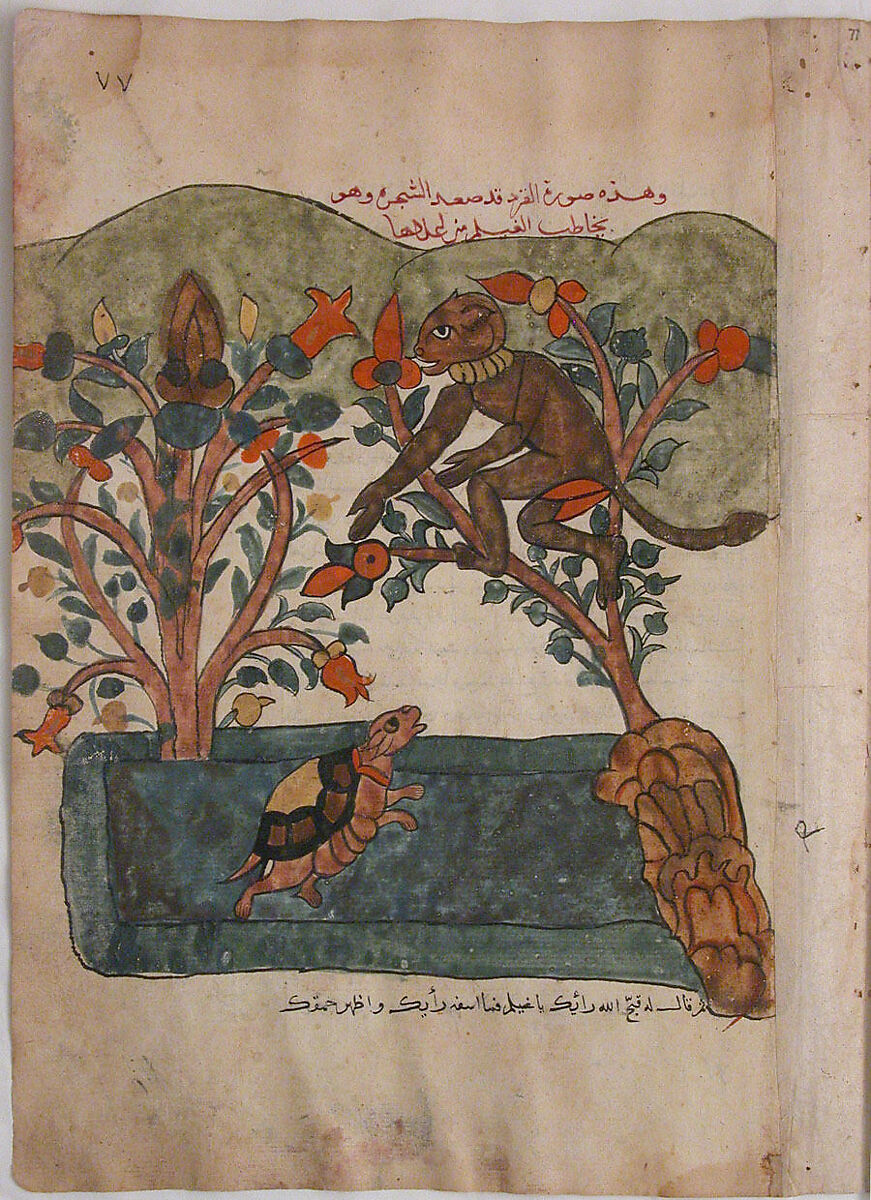 ٧٧
77
وهذه صورة القرد قد صعد الشجره وهو
يخاطب الغيلم من اعلاها
ثم قال له قبّح الله رائيك يا غيلم فما اسفه رأيك واظهر حمقك